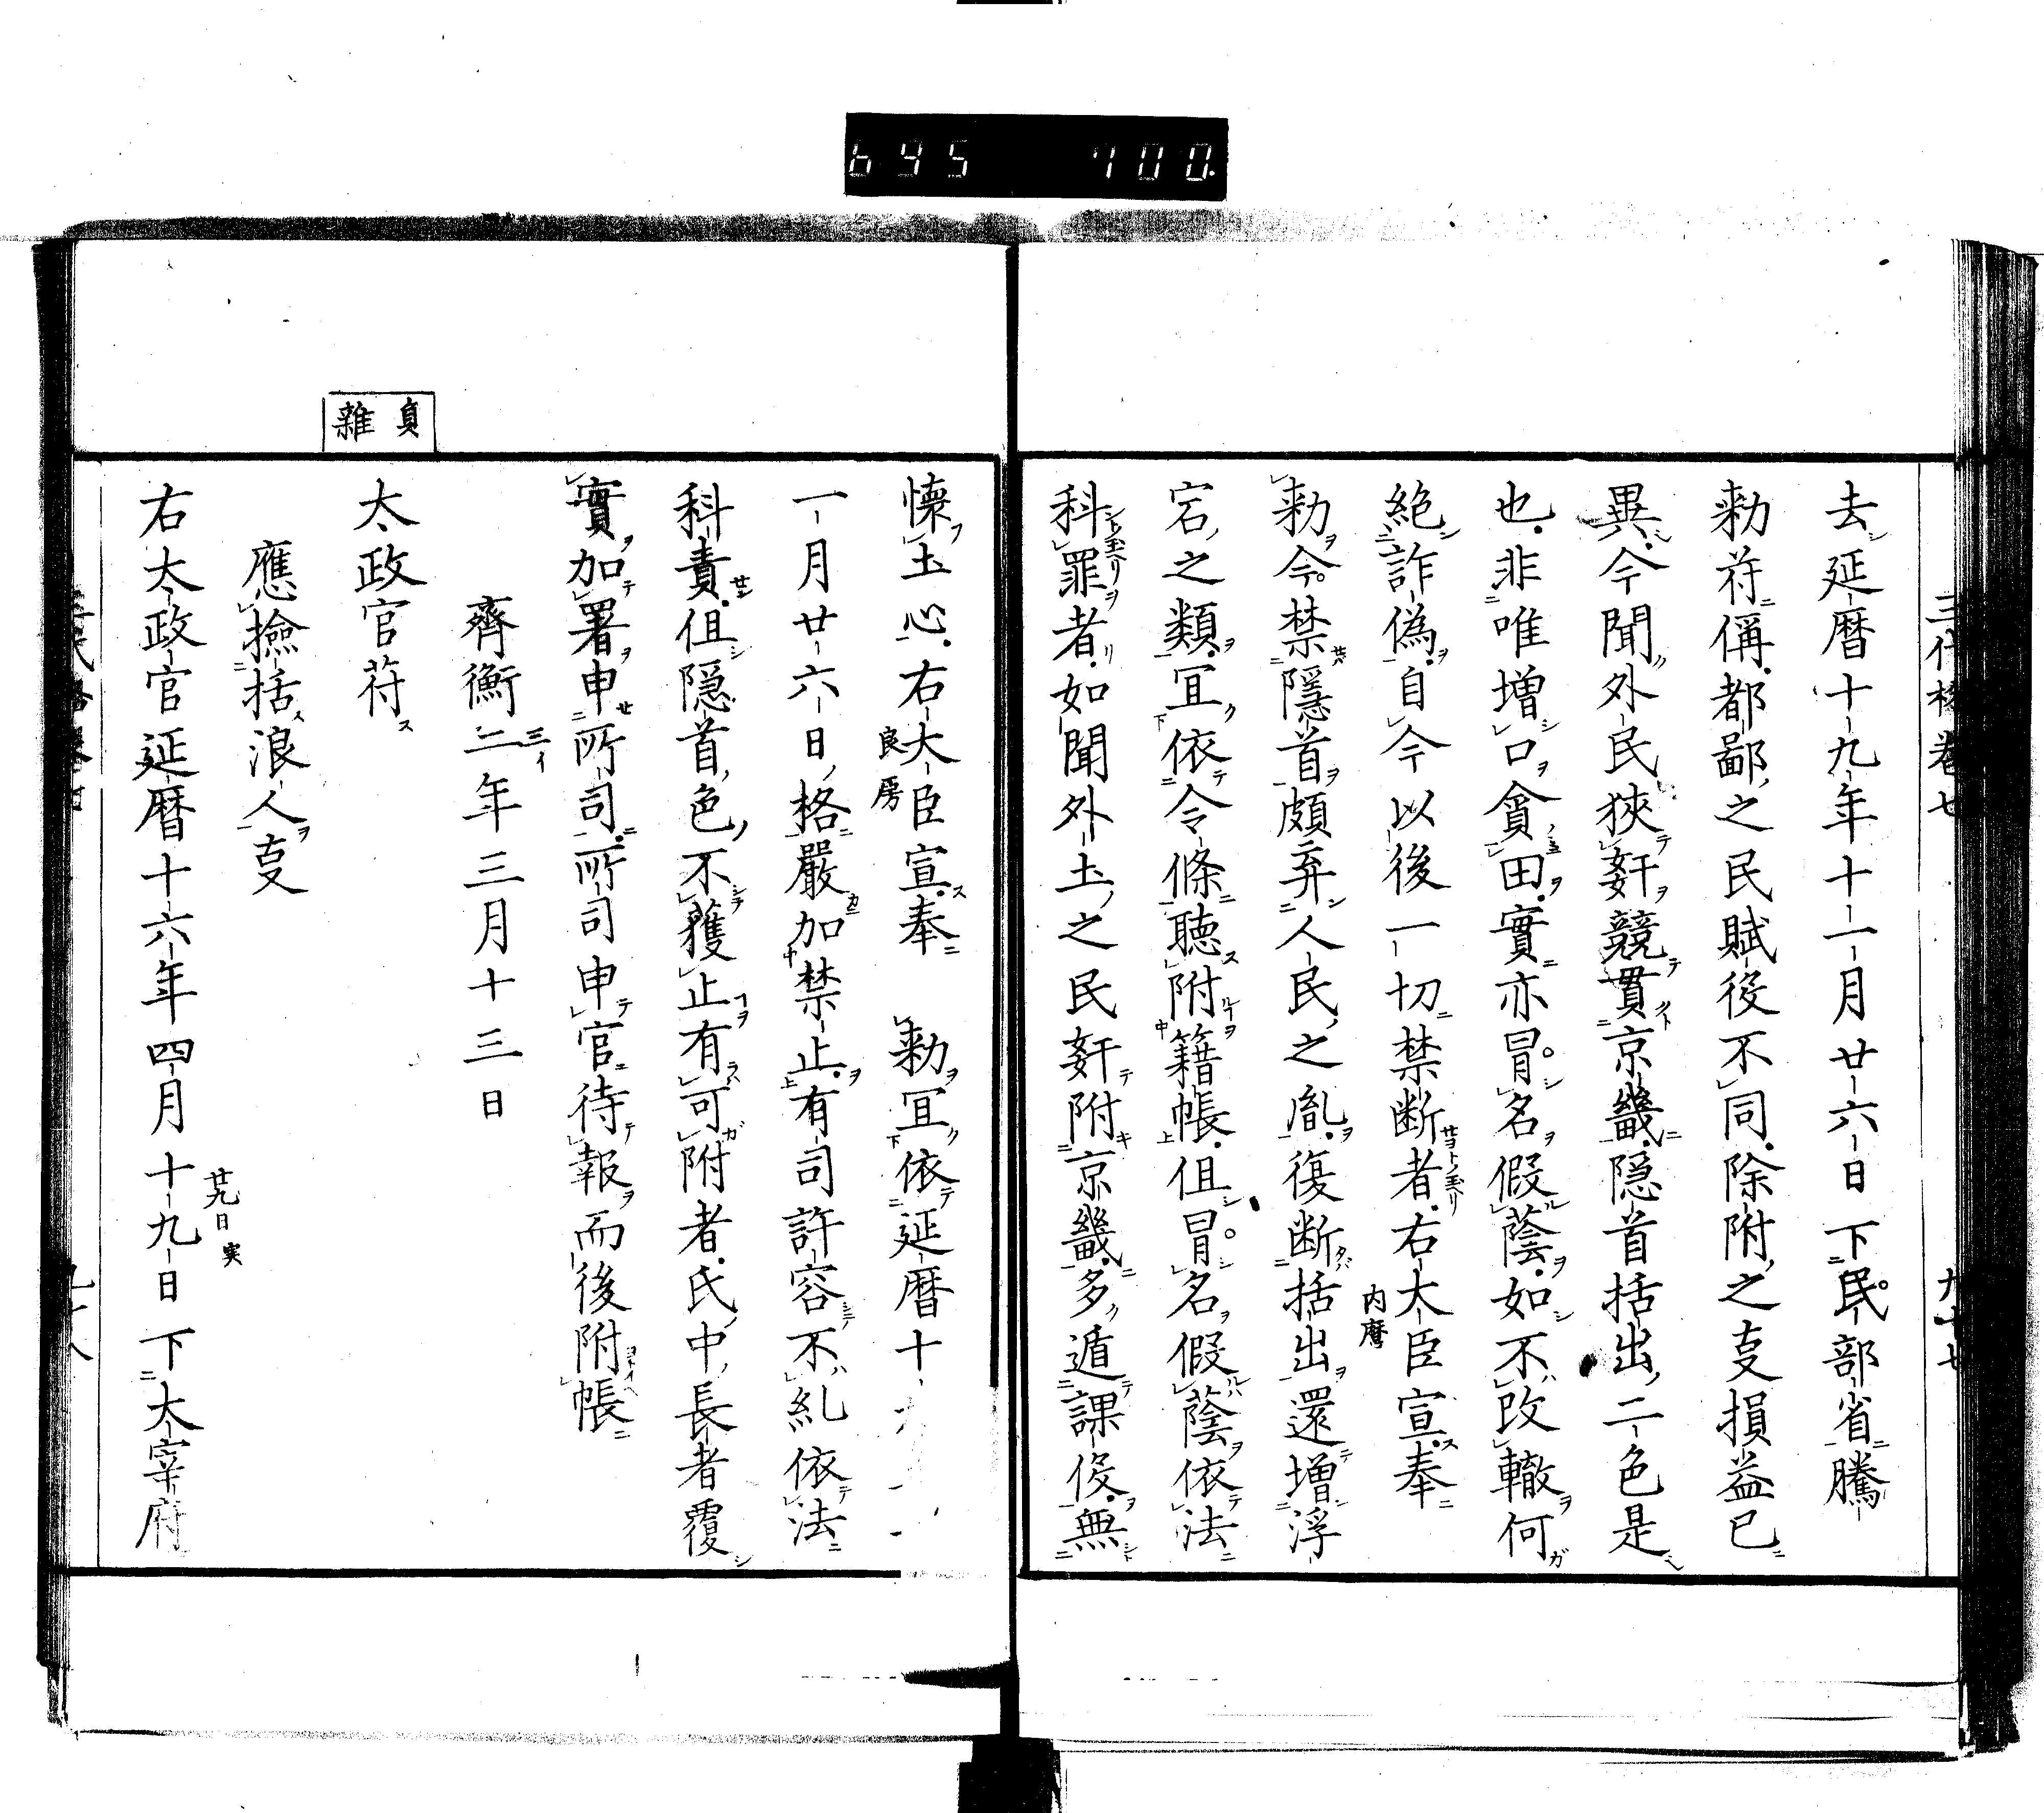 695 700
三代格卷七 九十七
去延暦十九年十一月廿六日下民部省騰
勅符偁都鄙之民賦役不同除附之叓損益已
異今聞外民狹奸競貫京畿隠首括出二色是
也非唯増口貪田實亦冒名假蔭如不改轍何
絶詐偽自今以後一切禁断者右大臣宣奉
内麿
勅今禁隠首頗弃人民之胤復断括出還増浮
宕之類冝依令條聴附籍帳但冒名假蔭依法
科罪者如聞外土之民奸附京畿多遁課役無
懐土心右大臣宣奉 勅冝依延暦十
良房
一月廿六日格嚴加禁止有司許容不糺依法
科責但隠首色不獲止有可附者氏中長者覆
實加署申所司所司申官待報而後附帳
齊衡二年三月十三日
三イ
貞
雜
太政官符
應撿括浪人叓
右太政官延暦十六年四月十九日下太宰府
廿九日実